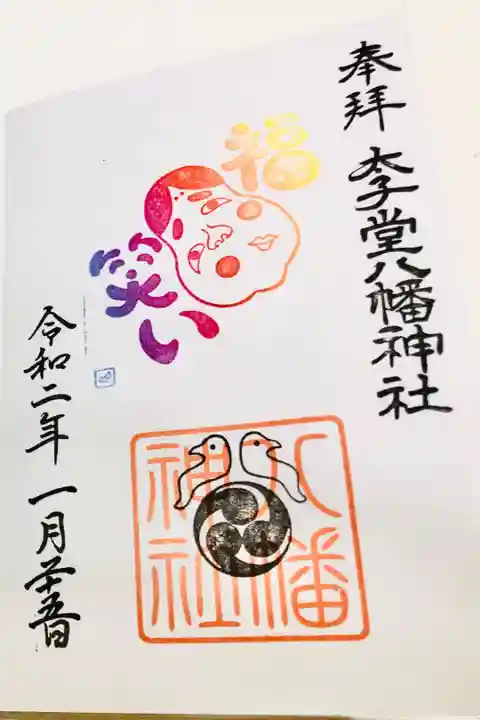 奉拝
太子堂八幡神社
福
笑い
八幡
神社
令和二年 一月二十五日